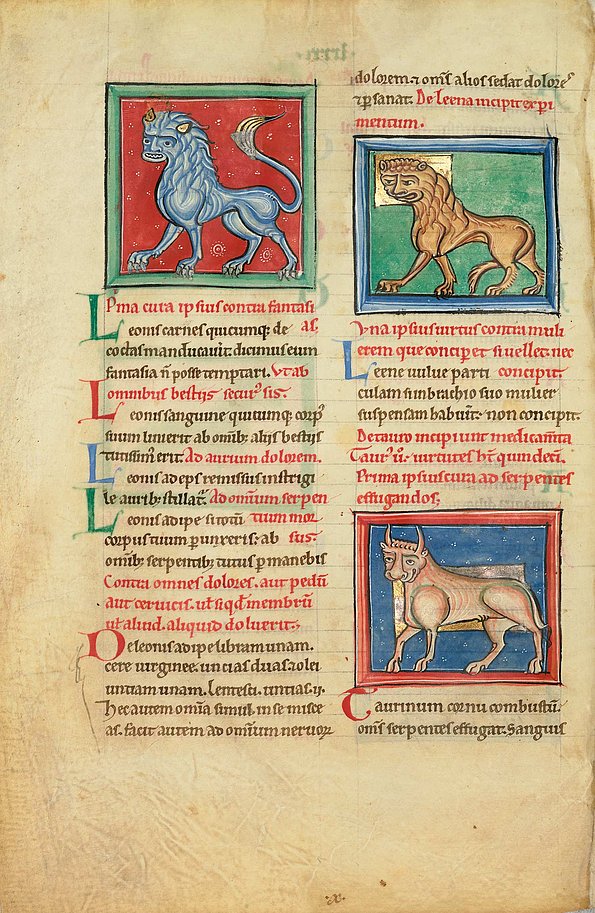 Prima cura ipsius contra fantasi
Leonis carnes quicumq; de as,
coctas manducaverit. dicimus eum
fantasia n̄ posse temptari. Ut ab
omnibus bestiis secur' sis.
Leonis sanguine quicumq; corp'
suum linierit ab omib; aliis bestiis
tutissim' erit. Ad aurium dolorem.
Leonis adeps remissus in strigi
le aurib; stillat'. Ad omnium serpen
Leonis adipe si totū tium mor
corpus tuum p̄unxeris. ab sus.
omib; serpentib; tutus p̄manebis
Contra omnes dolores. aut pedū
aut cervicis. ul' siqd membrū
ul' aliud. aliquid doluerit.
De leonis adipe libram unam.
cere virginee. uncias duas. olei
untiam unam. Lentescu. untias. ij.
Hec autem omīa simul. in se misce
as. facit autem ad omnium nervoꝝ
dolorem. ⁊ om̄s alios sedat dolore'
⁊ p̄sanat. De leena incipit exp̄i
mentum.
Una ipsius virtus contra muli
erem que concipet si vellet. nec
Leene uulue parti concipiet
culam sub brachio suo mulier
suspensam habuit'. non concipit.
De tauro incipiunt medicam̄ta
Taur' u'. virtutes ht' quindeci.
Prima ipsius cura ad serpentes
effugandos,
Taurinum cornu combustū.
om̄s serpentes effugat. Sanguis